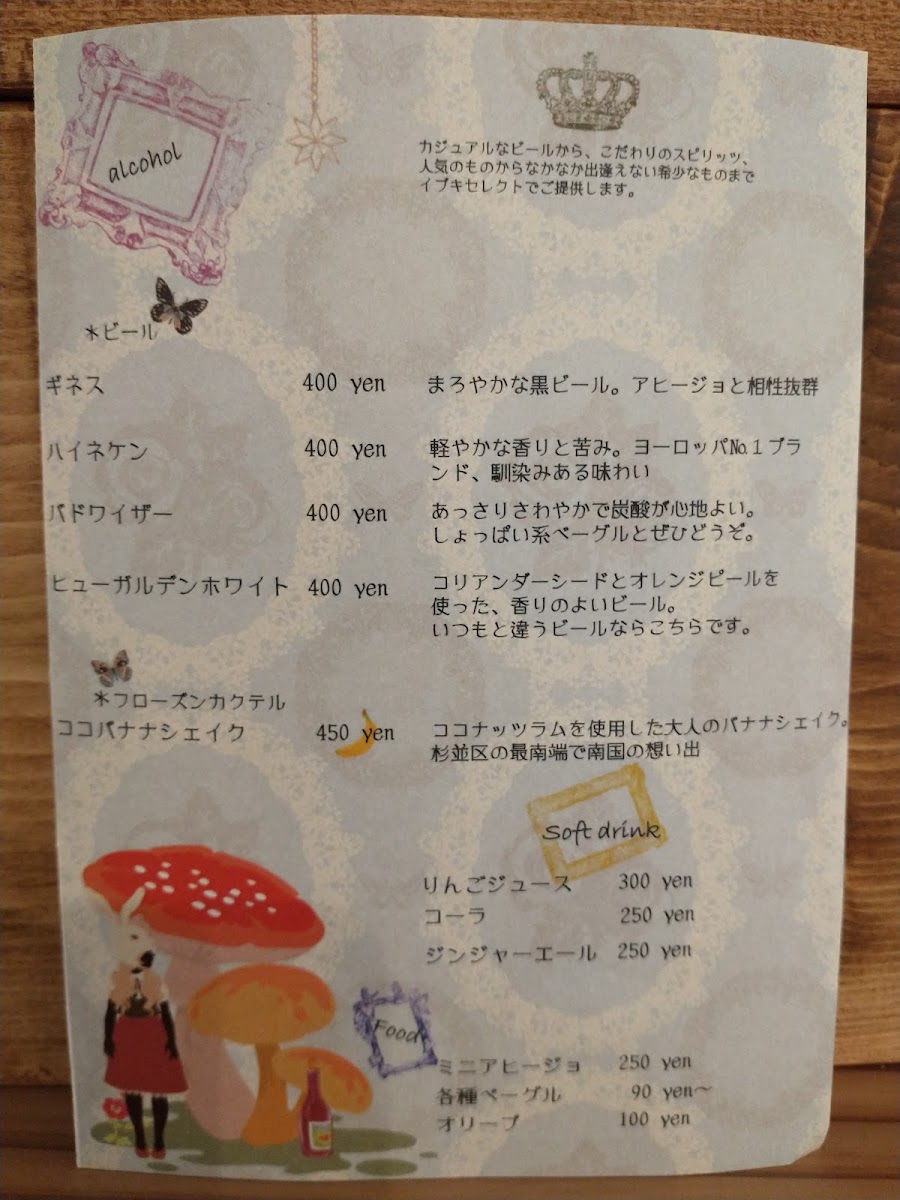 alcohol
カジュアルなビールから、こだわりのスピリッツ、
人気のものからなかなか出逢えない希少なものまで
イブキセレクトでご提供します。
＊ビール
ギネス 400 yen まろやかな黒ビール。アヒージョと相性抜群
ハイネケン 400 yen 軽やかな香りと苦み。ヨーロッパ№１ブラ
ンド、馴染みある味わい
バドワイザー 400 yen あっさりさわやかで炭酸が心地よい。
しょっぱい系ベーグルとぜひどうぞ。
ヒューガルデンホワイト 400 yen コリアンダーシードとオレンジピールを
使った、香りのよいビール。
いつもと違うビールならこちらです。
＊フローズンカクテル
ココバナナシェイク 450 yen ココナッツラムを使用した大人のバナナシェイク。
杉並区の最南端で南国の想い出
Soft drink
りんごジュース 300 yen
コーラ 250 yen
ジンジャーエール 250 yen
Food
ミニアヒージョ 250 yen
各種ベーグル 90 yen〜
オリーブ 100 yen